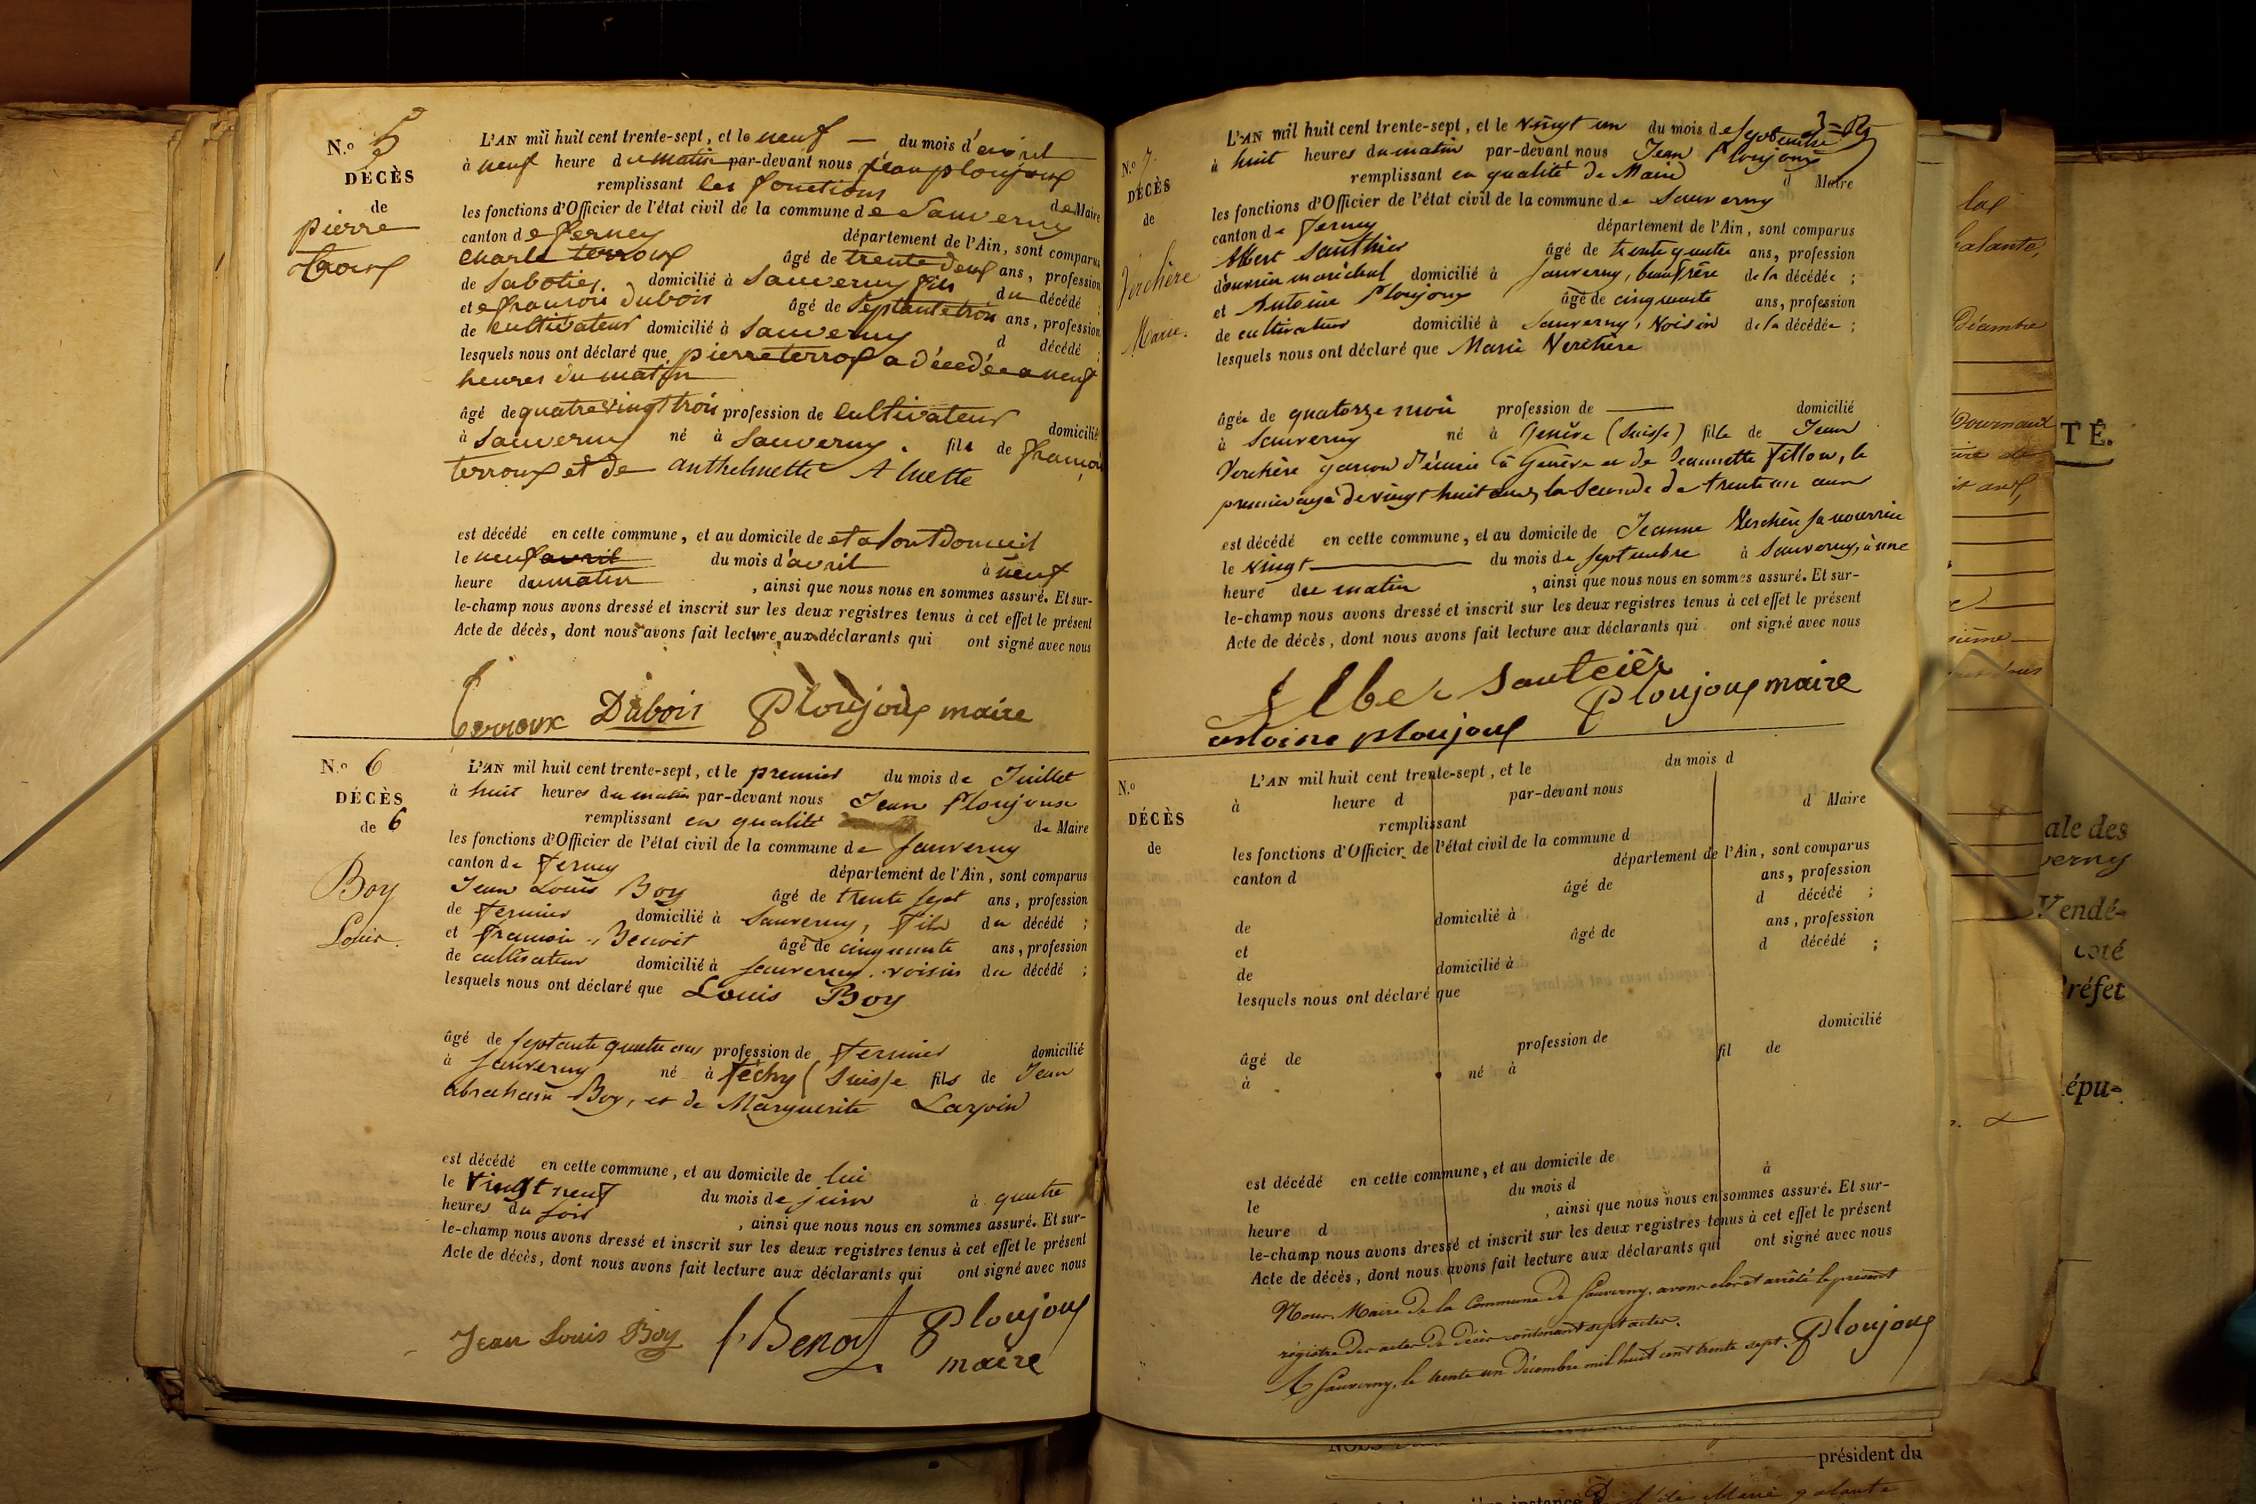 N.º 5
DÉCÈS
de
pierre
L'AN mil huit cent trente-sept, et le neuf — du mois d'avril
à neuf heure du matin par-devant nous jean ploujoux
remplissant les fonctions de Maire
les fonctions d'Officier de l'état civil de la commune de Sauverny
canton de ferney département de l'Ain, sont comparus
Charle terroux âgé de trente deux ans, profession
de Sabotier domicilié à Sauverny fils du décédé ;
et françois Dubois âgé de Septante trois ans, profession
de cultivateur domicilié à Sauverny d décédé ;
lesquels nous ont déclaré que pierre terroux a décédée a neuf
heures du matin
âgé de quatre vingt trois profession de cultivateur domicilié
à Sauverny né à Sauverny . fils de françois
terroux et de anthelmette
est décédé en cette commune, et au domicile de
le neuf avril du mois d'avril à neuf
heure du matin , ainsi que nous nous en sommes assuré. Et sur-
le-champ nous avons dressé et inscrit sur les deux registres tenus à cet effet le présent
Acte de décès, dont nous avons fait lecture aux déclarants qui ont signé avec nous
terroux Dubois Ploujoux maire
N.º 6
DÉCÈS
de 6
Boy
Louis.
L'AN mil huit cent trente-sept, et le premier du mois de Juillet
à huit heures du matin par-devant nous Jean Ploujoux
remplissant en qualité de Maire
les fonctions d'Officier de l'état civil de la commune de Sauverny
canton de Ferney département de l'Ain, sont comparus
Jean Louis Boy âgé de trente sept ans, profession
de Fermier domicilié à Sauverny, Fils du décédé ;
et François Benoit âgé de cinquante ans, profession
de cultivateur domicilié à Sauverny. voisin du décédé ;
lesquels nous ont déclaré que Louis Boy
âgé de septante quatre ans profession de Fermier domicilié
à Sauverny né à Féchy (Suisse fils de Jean
abraham Boy, et de Marguerite
est décédé en cette commune, et au domicile de lui
le Vingt neuf du mois de juin à quatre
heures du soir , ainsi que nous nous en sommes assuré. Et sur-
le-champ nous avons dressé et inscrit sur les deux registres tenus à cet effet le présent
Acte de décès, dont nous avons fait lecture aux déclarants qui ont signé avec nous
Jean Louis Boy f. Benoit Ploujoux
maire
N.º 7.
DÉCÈS
de
Verchère
Marie.
L'AN mil huit cent trente-sept, et le vingt un du mois de septembre
à huit heures du matin par-devant nous Jean Ploujoux
remplissant en qualité de Maire d Maire
les fonctions d'Officier de l'état civil de la commune de Sauverny
canton de Ferney département de l'Ain, sont comparus
Albert Sauthier âgé de trente quatre ans, profession
d'ouvrier maréchal domicilié à Sauverny, beaufrère de la décédée ;
et Antoine Ploujoux âgé de cinquante ans, profession
de cultivateur domicilié à Sauverny, Voisin de la décédée ;
lesquels nous ont déclaré que Marie Verchère
âgée de quatorze mois profession de — domicilié
à Sauverny né à Genève (Suisse) fille de Jean
Verchère garçon d'écurie à Genève et de Jeannette Fillon, le
premier agé de vingt huit ans, la seconde de trente un ans
est décédé en cette commune, et au domicile de Jeanne Verchère sa nourrice
le vingt — du mois de septembre à Sauverny, à une
heure du matin , ainsi que nous nous en sommes assuré. Et sur-
le-champ nous avons dressé et inscrit sur les deux registres tenus à cet effet le présent
Acte de décès, dont nous avons fait lecture aux déclarants qui ont signé avec nous
Alber Sauteier Ploujoux maire
antoine ploujoux
N.º
DÉCÈS
de
L'AN mil huit cent trente-sept, et le du mois d
à heure d par-devant nous
remplissant d Maire
les fonctions d'Officier de l'état civil de la commune d
canton d département de l'Ain, sont comparus
âgé de ans, profession
de domicilié à d décédé ;
et âgé de ans, profession
de domicilié à d décédé ;
lesquels nous ont déclaré que
âgé de profession de domicilié
à né à fil de
est décédé en cette commune, et au domicile de
le du mois d à
heure d , ainsi que nous nous en sommes assuré. Et sur-
le-champ nous avons dressé et inscrit sur les deux registres tenus à cet effet le présent
Acte de décès, dont nous avons fait lecture aux déclarants qui ont signé avec nous
Nous, Maire de la Commune de Sauverny, avons clos et arrêté le présent
registre des actes de décès contenant sept actes.
A Sauverny, le trente un Décembre mil huit cent trente sept. Ploujoux
TÉ.
ale des
verny
Vendé-
Préfet
épu-
président du